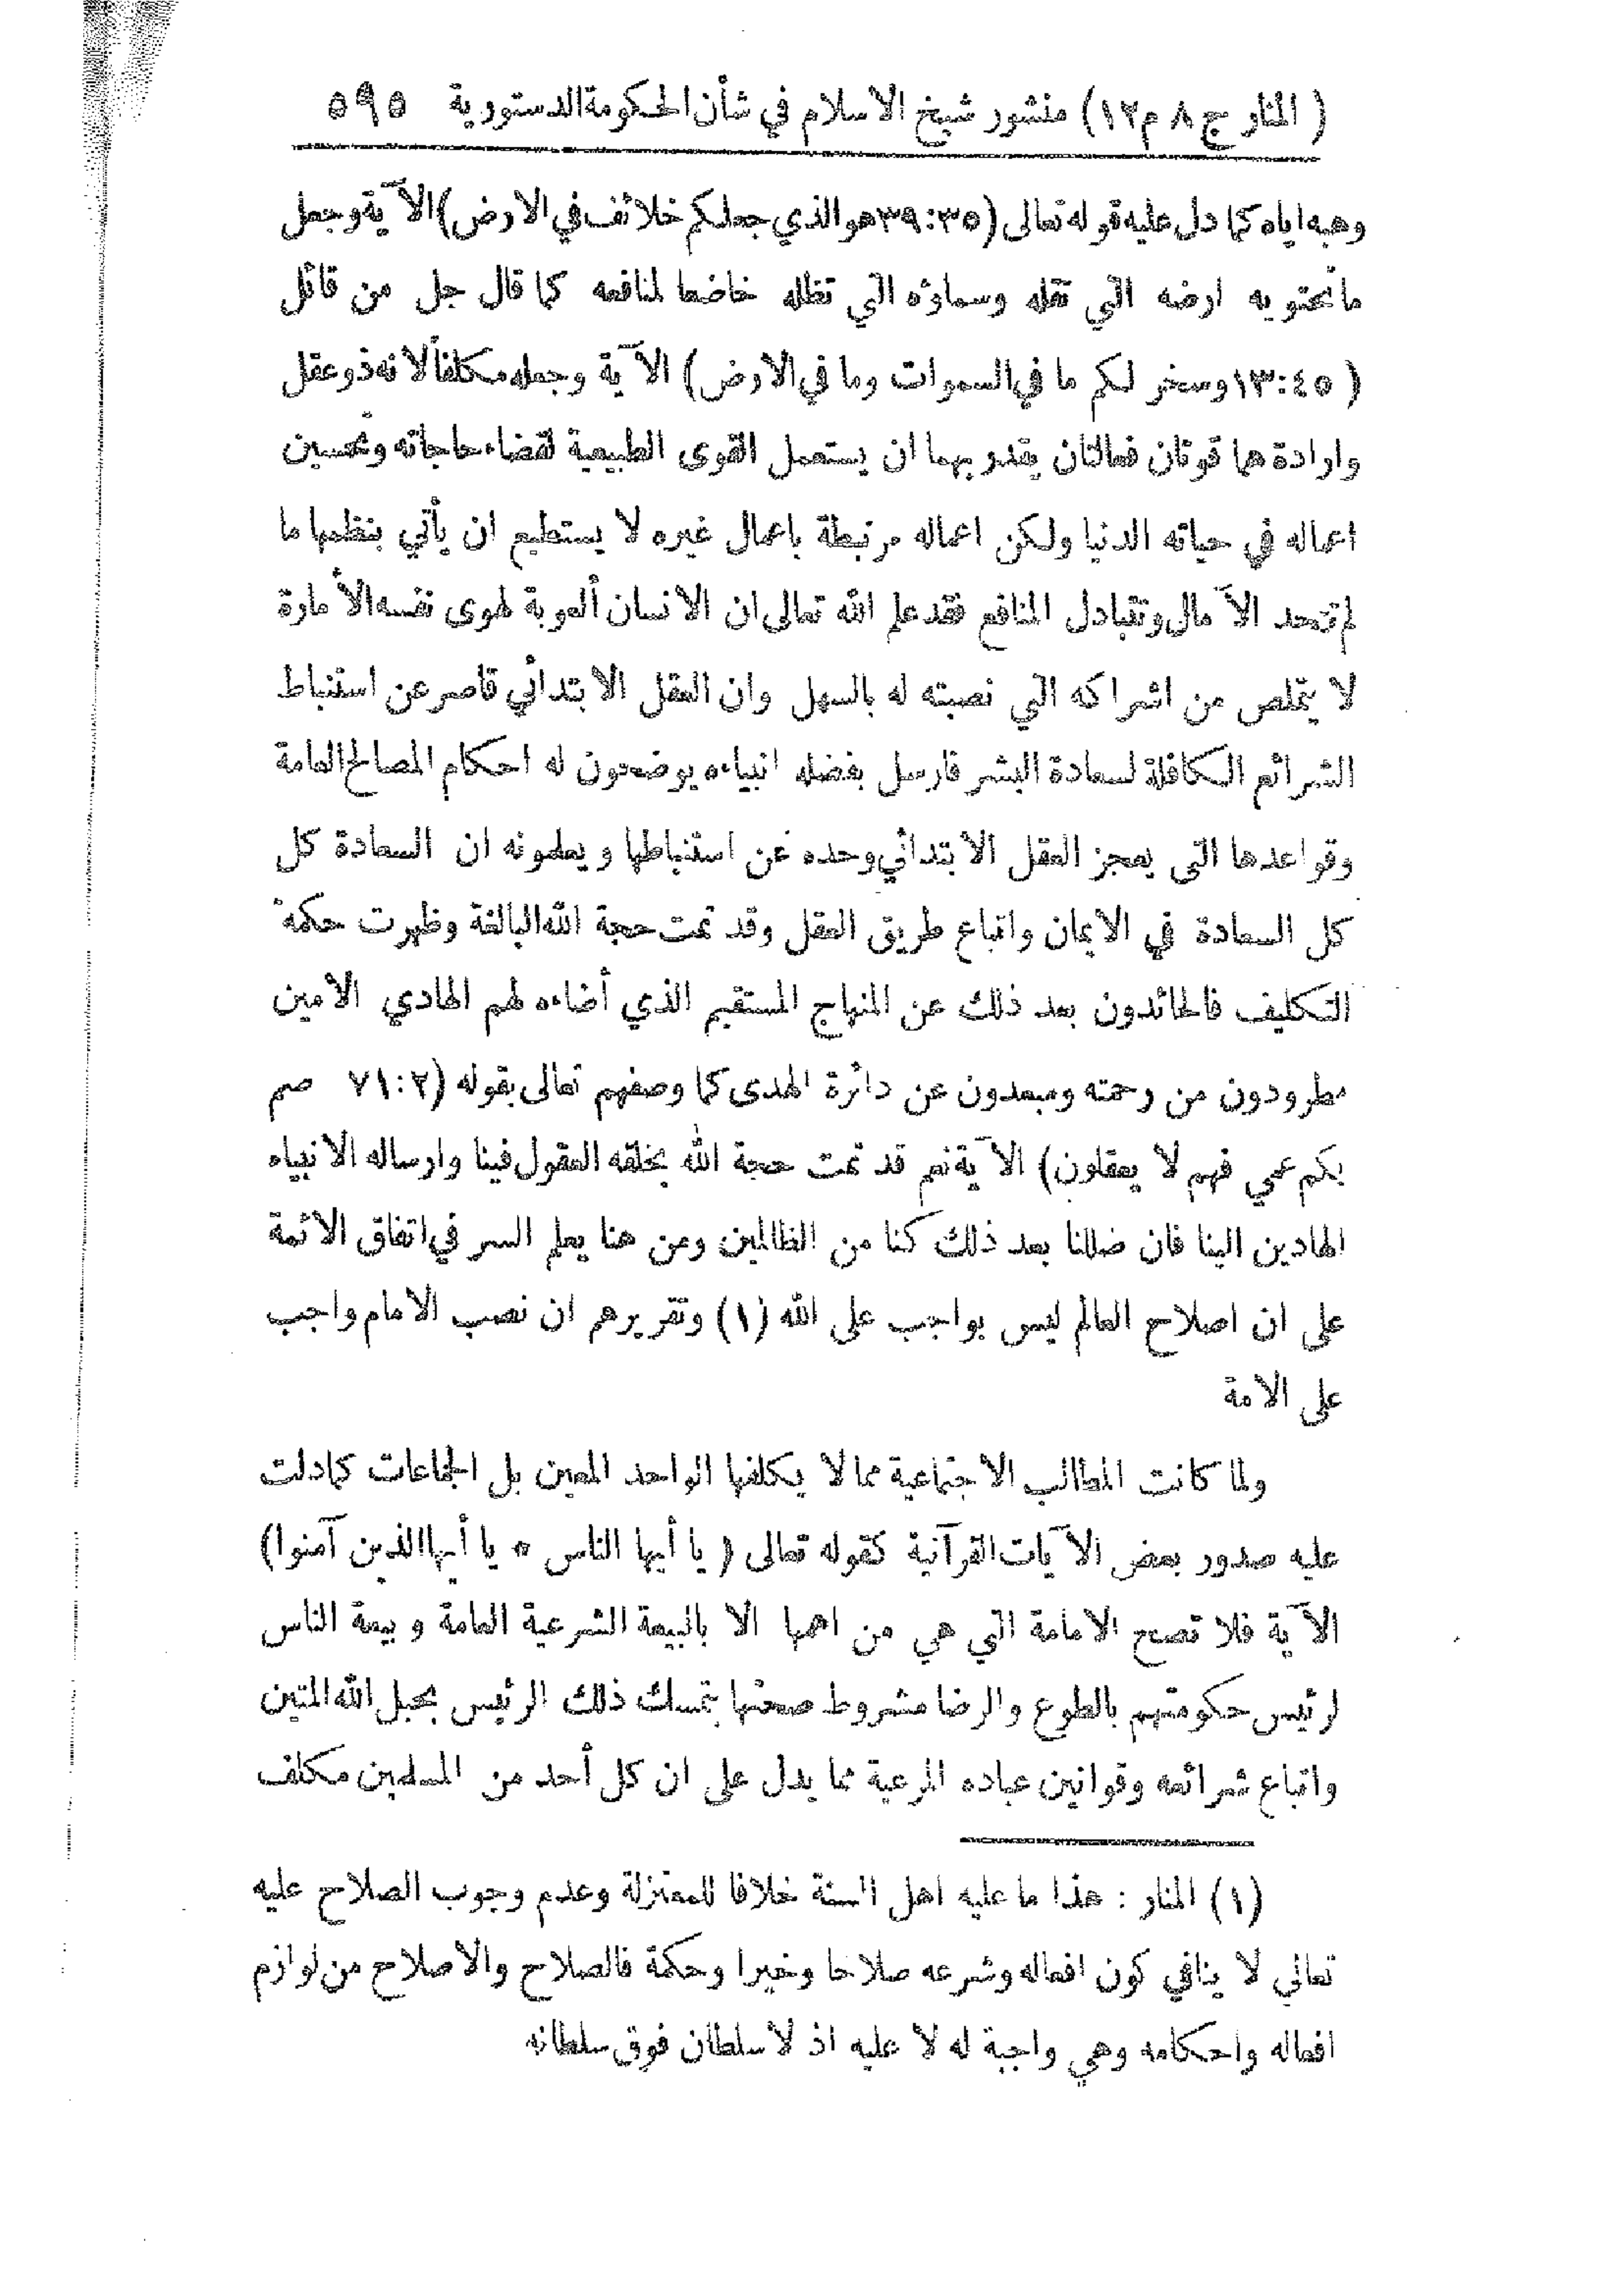 ( المنار ج ٨ م ١٢ ) منشور شيخ الاسلام في شأن الحكومة الدستورية ٥٩٥
وهبه اياه كما دل عليه قوله تعالى (٣٩:٣٥ هو الذي جعلكم خلائف في الارض) الآية وجعل
ما تحتويه ارضه التي تقله وسماؤه التي تظله خاضعا لمنافعه كما قال جل من قائل
( ١٣:٤٥ وسخر لكم ما في السموات وما في الارض) الآية وجعله مكلفاً لانه ذو عقل
وارادة هما قوتان فعالتان يقتدر بهما ان يستعمل القوى الطبيعية لقضاء حاجاته وتحسين
اعماله في حياته الدنيا ولكن اعماله مرتبطة باعمال غيره لا يستطيع ان يأتي بنظمها ما
لم تتحد الآمال وتتبادل المنافع فقد علم الله تعالى ان الانسان ألعوبة لهوى نفسه الأمارة
لا يتملص من اشراكه التي نصبته له بالسهل وان العقل الابتدائي قاصر عن استنباط
الشرائع الكافلة لسعادة البشر فارسل بفضله انبياءه يوضحون له احكام المصالح العامة
وقواعدها التى يعجز العقل الابتدائي وحده عن استنباطها ويعلمونه ان السعادة كل
كل السعادة في الايمان واتباع طريق العقل وقد تمت حجة الله البالغة وظهرت حكمة
التكليف فالحائدون بعد ذلك عن المنهاج المستقيم الذي أضاءه لهم الهادي الامين
مطرودون من رحمته ومبعدون عن دائرة الهدى كما وصفهم تعالى بقوله (٧١:٢ صم
بكم عمي فهم لا يعقلون) الآية نعم قد تمت حجة الله بخلقه العقول فينا وارساله الانبياء
الهادين الينا فان ضللنا بعد ذلك كنا من الظالمين ومن هنا يعلم السر في اتفاق الائمة
على ان اصلاح العالم ليس بواجب على الله (١) وتقريرهم ان نصب الامام واجب
على الامة
ولما كانت المطالب الاجتماعية مما لا يكلفها الواحد المعين بل الجماعات كما دلت
عليه صدور بعض الآيات القرآنية كقوله تعالى ( يا أيها الناس ٥ يا أيها الذين آمنوا)
الآية فلا تصح الامامة التي هي من اهمها الا بالبيعة الشرعية العامة وبيعة الناس
لرئيس حكومتهم بالطوع والرضا مشروط صحتها بتمسك ذلك الرئيس بحبل الله المتين
واتباع شرائعه وقوانين عباده المرعية مما يدل على ان كل أحد من المسلمين مكلف
(١) المنار : هذا ما عليه اهل السنة خلافا للمعتزلة وعدم وجوب الصلاح عليه
تعالى لا ينافي كون افعاله وشرعه صلاحا وخيرا وحكمة فالصلاح والاصلاح من لوازم
افعاله واحكامه وهي واجبة له لا عليه اذ لا سلطان فوق سلطانه